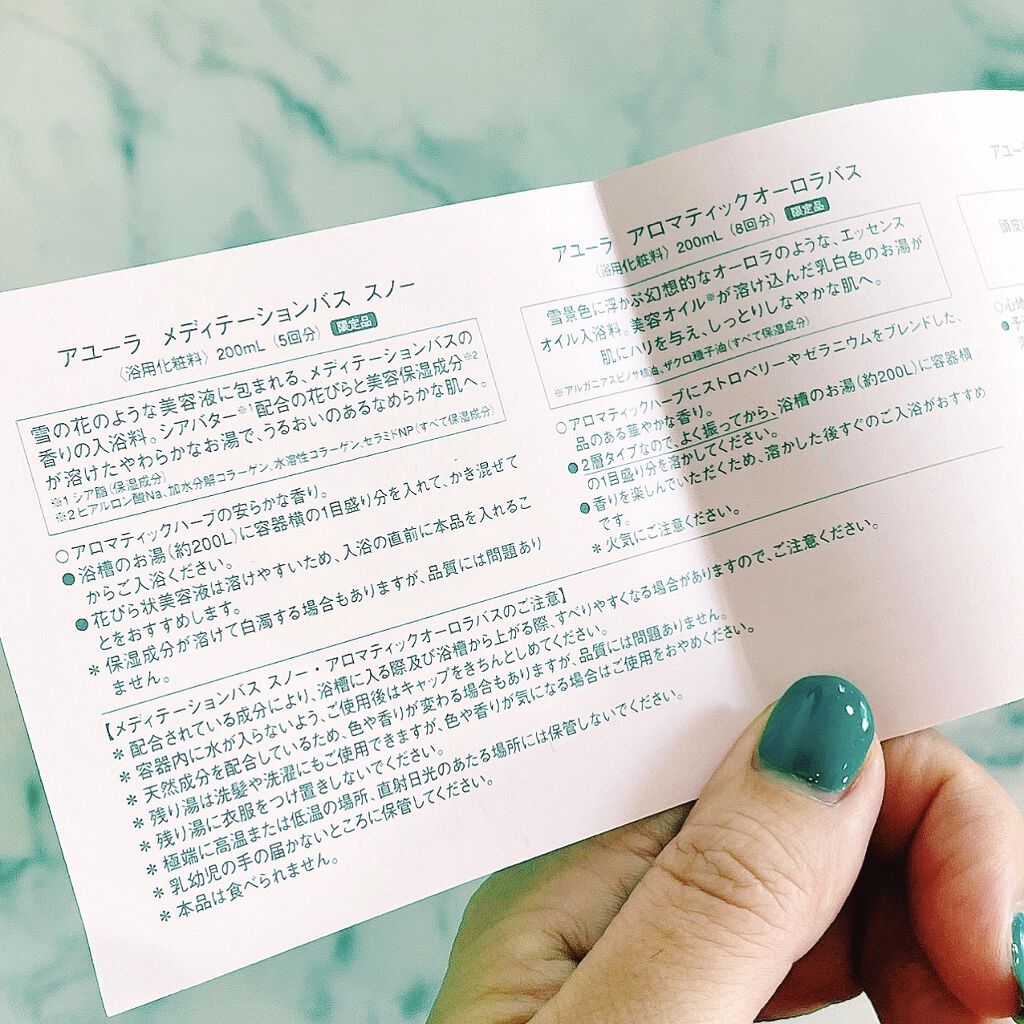 アユーラ メディテーションバス スノー
〈浴用化粧料〉200mL（5回分） 限定品
雪の花のような美容液に包まれる、メディテーションバスの
香りの入浴料。シアバター※1配合の花びらと美容保湿成分※2
が溶けたやわらかなお湯で、うるおいのあるなめらかな肌へ。
※1 シア脂（保湿成分）
※2 ヒアルロン酸Na、加水分解コラーゲン、水溶性コラーゲン、セラミドNP（すべて保湿成分）
○アロマティックハーブの安らかな香り。
●浴槽のお湯（約200L）に容器横の1目盛り分を入れて、かき混ぜて
からご入浴ください。
●花びら状美容液は溶けやすいため、入浴の直前に本品を入れるこ
とをおすすめします。
＊保湿成分が溶けて白濁する場合もありますが、品質には問題あり
ません。
アユーラ アロマティックオーロラバス
〈浴用化粧料〉200mL（8回分） 限定品
雪景色に浮かぶ幻想的なオーロラのような、エッセンス
オイル入浴料。美容オイル※が溶け込んだ乳白色のお湯が
肌にハリを与え、しっとりしなやかな肌へ。
※アルガニアスピノサ核油、ザクロ種子油（すべて保湿成分）
○アロマティックハーブにストロベリーやゼラニウムをブレンドした、
品のある華やかな香り。
●2層タイプなので、よく振ってから、浴槽のお湯（約200L）に容器横
の1目盛り分を溶かしてください。
●香りを楽しんでいただくため、溶かした後すぐのご入浴がおすすめ
です。
＊火気にご注意ください。
【メディテーションバス スノー・アロマティックオーロラバスのご注意】
＊配合されている成分により、浴槽に入る際及び浴槽から上がる際、すべりやすくなる場合がありますので、ご注意ください。
＊容器内に水が入らないよう、ご使用後はキャップをきちんとしめてください。
＊天然成分を配合しているため、色や香りが変わる場合もありますが、品質には問題ありません。
＊残り湯は洗髪や洗濯にもご使用できますが、色や香りが気になる場合はご使用をおやめください。
＊残り湯に衣服をつけ置きしないでください。
＊極端に高温または低温の場所、直射日光のあたる場所には保管しないでください。
＊乳幼児の手の届かないところに保管してください。
＊本品は食べられません。
アユー
頭皮
○心地
●予